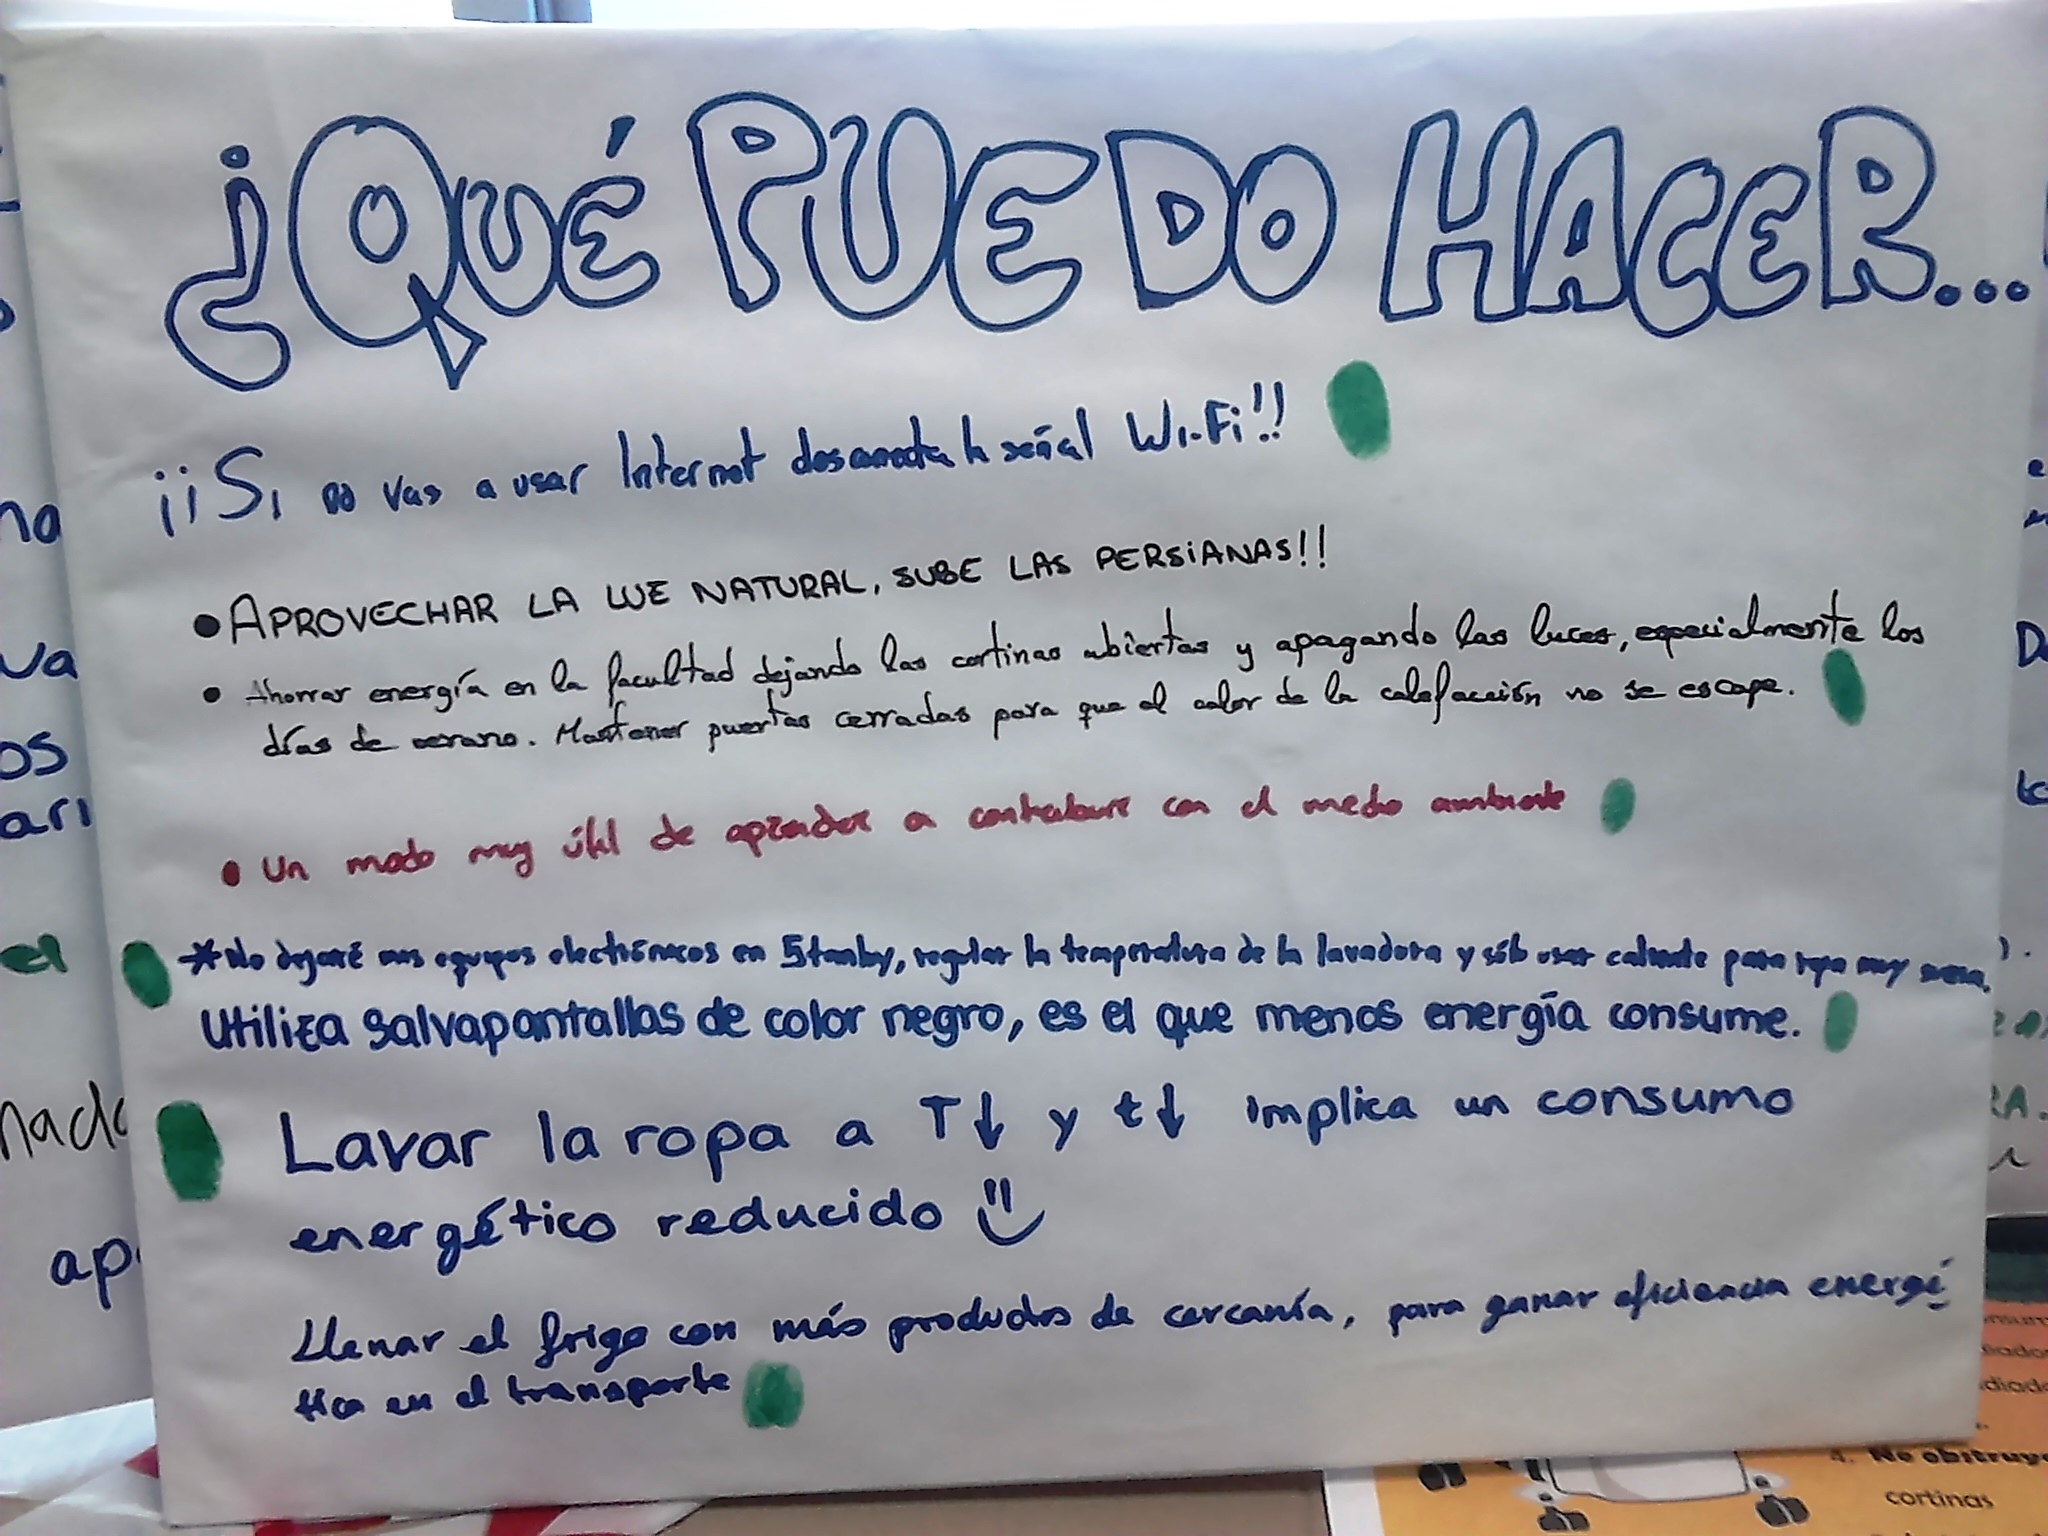 ¿QUÉ PUEDO HACER...
¡¡Si no vas a usar Internet desconecta la señal Wi-Fi!!
● APROVECHAR LA LUZ NATURAL, SUBE LAS PERSIANAS!!
● Ahorrar energía en la facultad dejando las cortinas abiertas y apagando las luces, especialmente los
días de verano. Mantener puertas cerradas para que el calor de la calefacción no se escape.
● Un modo muy útil de aprender a contribuir con el medio ambiente
* No dejaré mis equipos electrónicos en Stanby, regular la temperatura de la lavadora y sólo usar caliente para ropa muy
Utiliza salvapantallas de color negro, es el que menos energía consume.
Lavar la ropa a T↓ y t↓ implica un consumo
energético reducido
Llenar el frigo con más productos de cercanía, para ganar eficiencia energé
tica en el transporte
4. No obstruy
cortinas